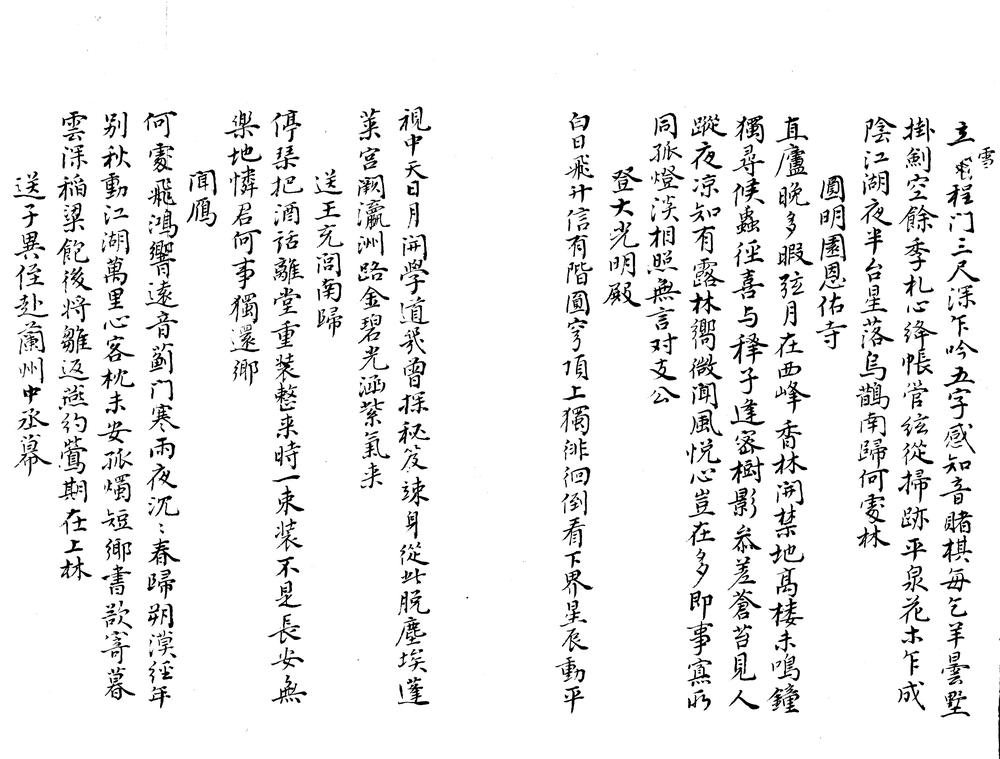 立雪程门三尺深乍吟五字感知音賭棋每乞羊曇墅
掛劍空餘季札心絳帳管絃從掃跡平泉花木乍成
陰江湖夜半台星落烏鵲南歸何處林
圓明園恩佑寺
直廬晚多暇弦月在西峰香林開禁地高楼未鳴鐘
獨尋候蟲徑喜与釋子逢密樹影叅差蒼苔見人
蹤夜凉知有露林嚮微聞風悦心豈在多即事寡所
同孤燈淡相照無言对支公
登大光明殿
白日飛升信有階圓穹頂上獨徘徊倒看下界星辰動平
視中天日月開學道我曾探秘笈竦身從此脱塵埃蓬
萊宮闕瀛洲路金碧光涵紫氣来
送王充闾南歸
停琹把酒話離堂重装整来時一束装不是長安無
樂地憐君何事獨還鄉
聞鴈
何處飛鴻響遠音薊门寒雨夜沉〻春歸朔漠經年
别秋動江湖萬里心客枕未安孤燭短鄉書欲寄暮
雲深稻粱飽後将雛返燕约鶯期在上林
送子異侄赴蘭州中丞幕